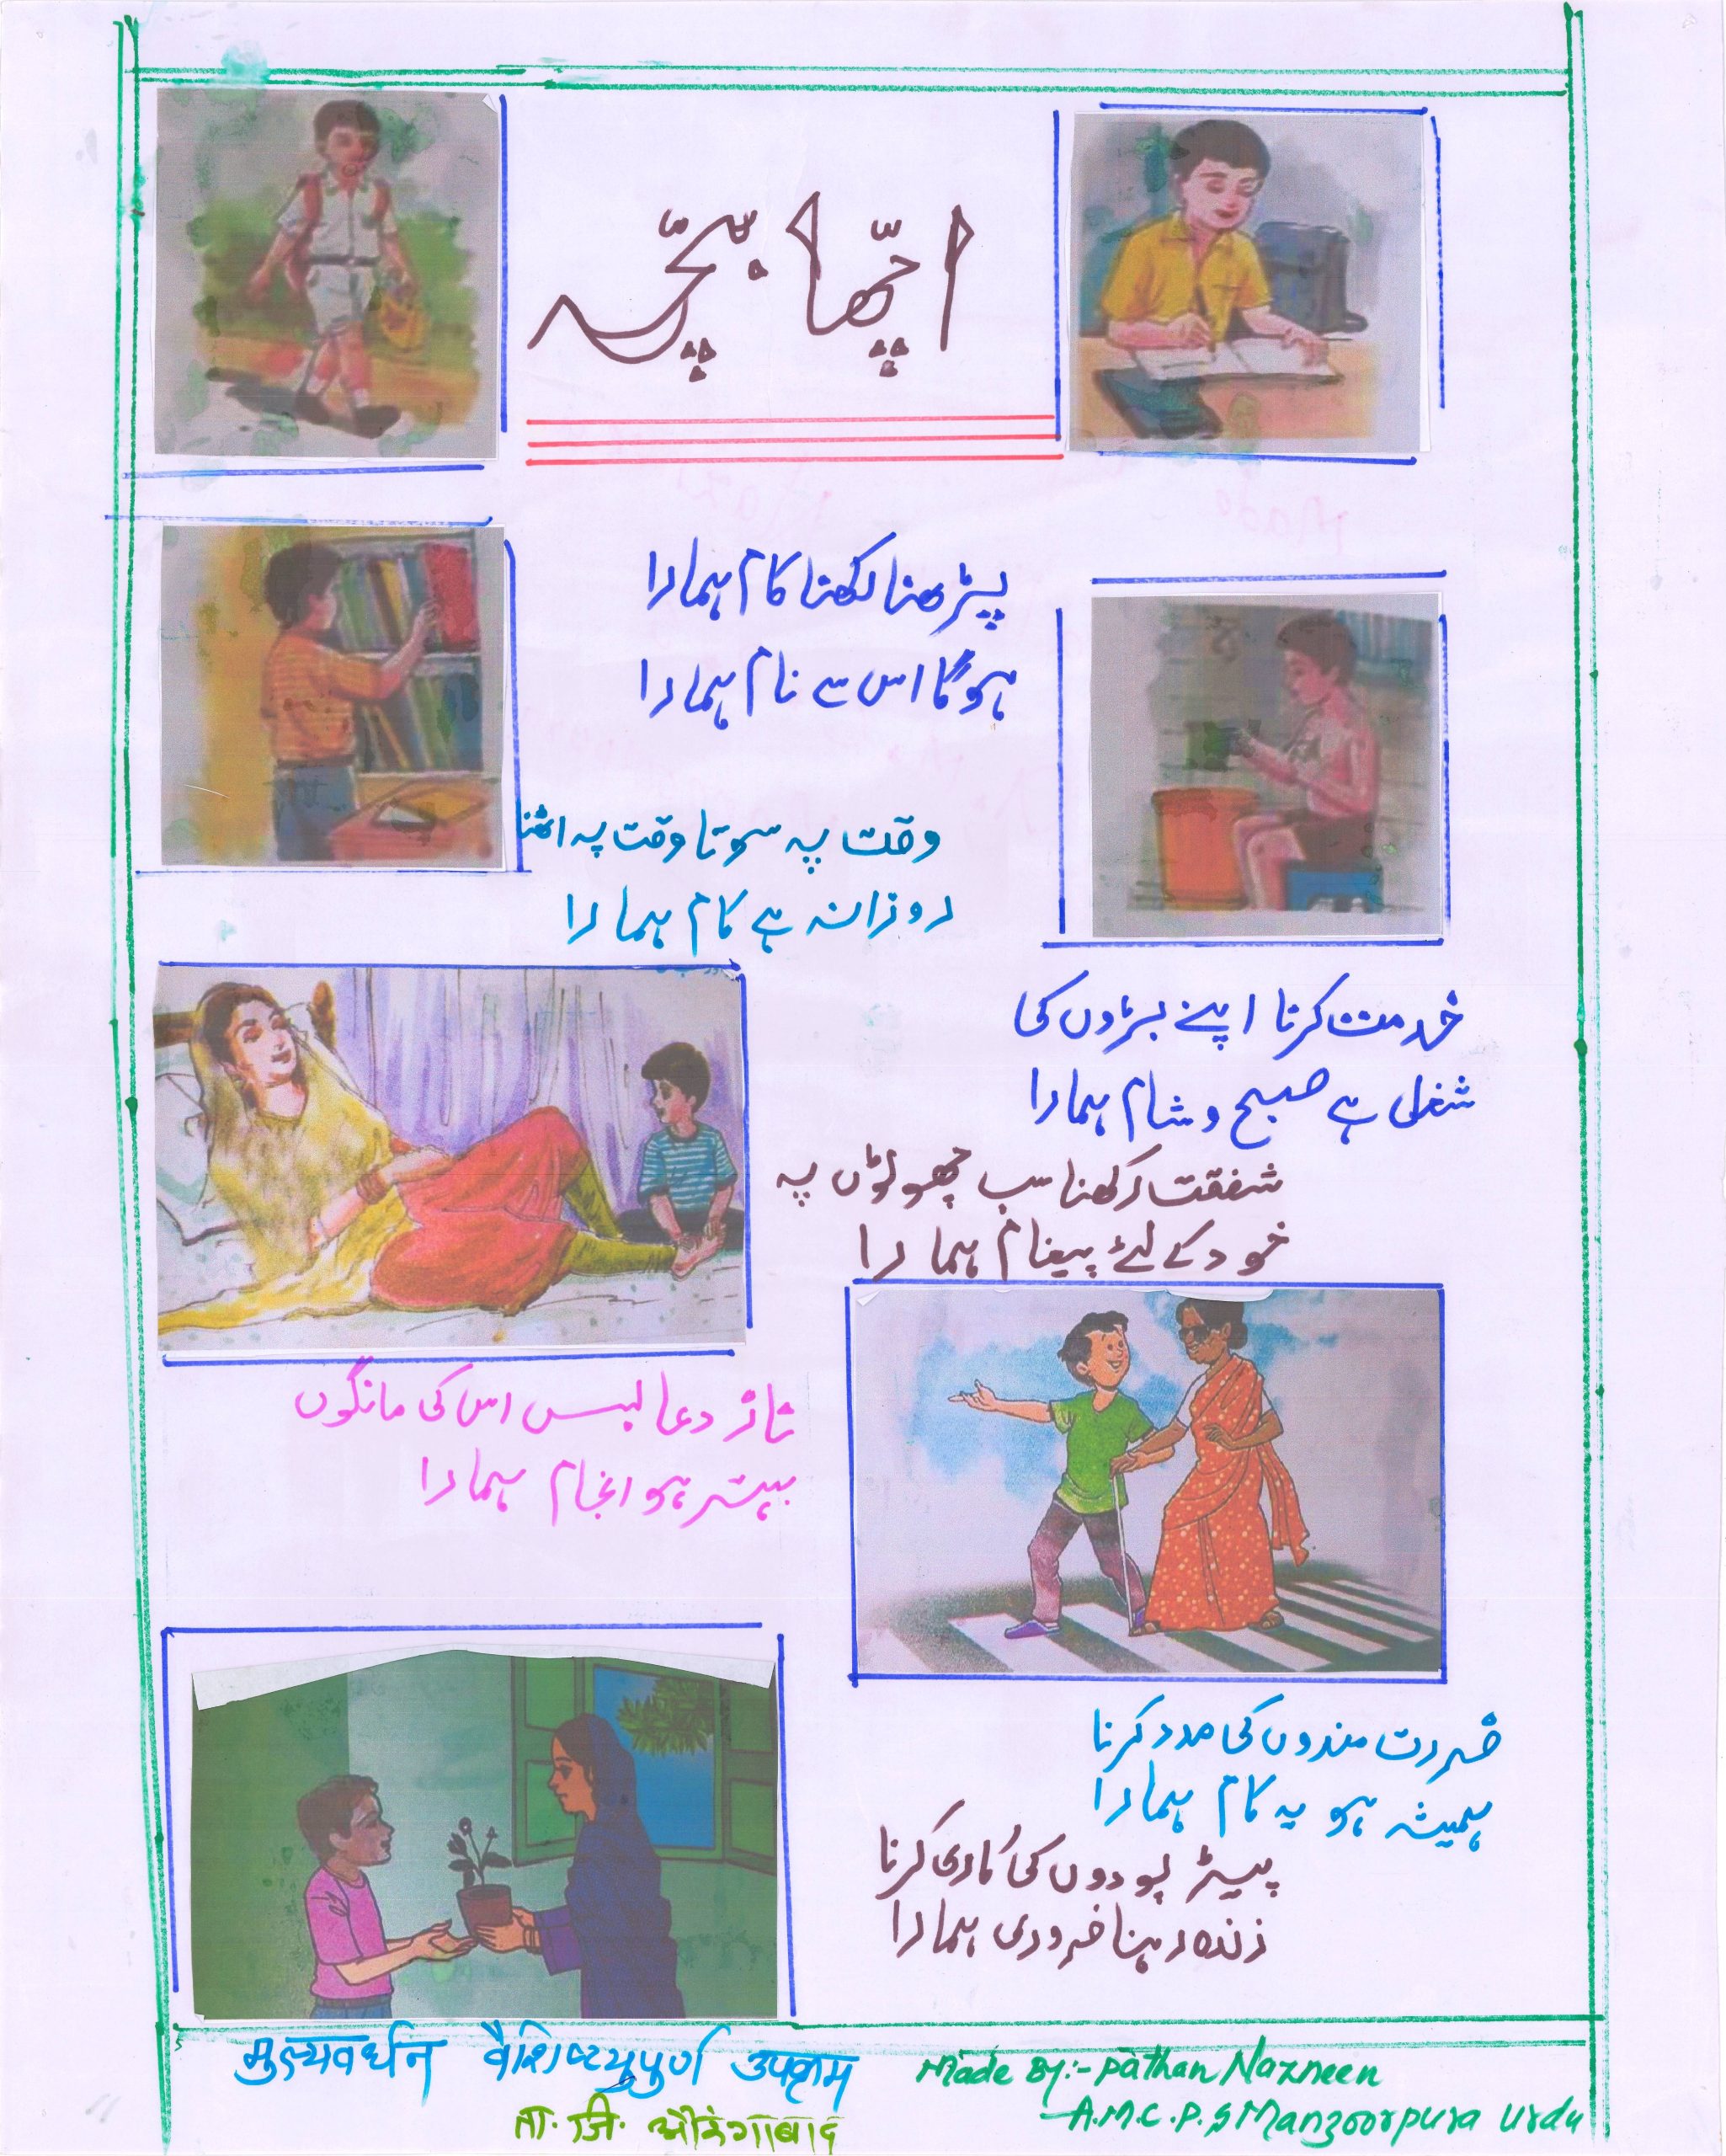 اچّھا بچّہ
پڑھنا لکھنا کام ہمارا
ہوگا اس سے نام ہمارا
وقت پہ سوتا وقت پہ اٹھنا
روزانہ ہے کام ہمارا
خدمت کرنا اپنے بڑوں کی
شغل ہے صبح و شام ہمارا
شفقت رکھنا سب چھوٹوں پہ
خود کے لئے پیغام ہمارا
دعا بس اس کی مانگوں
بہتر ہو انجام ہمارا
ضرورت مندوں کی مدد کرنا
ہمیشہ ہو یہ کام ہمارا
پیڑ پودوں کی کرنا
زندہ رہنا ضروری ہمارا
मुल्यवर्धन वैशिष्ट्यपुर्ण उपक्रम
ता. जि. औरंगाबाद
Made By:- Pathan Nazneen
A.M.C.P.S Manzoorpura Urdu